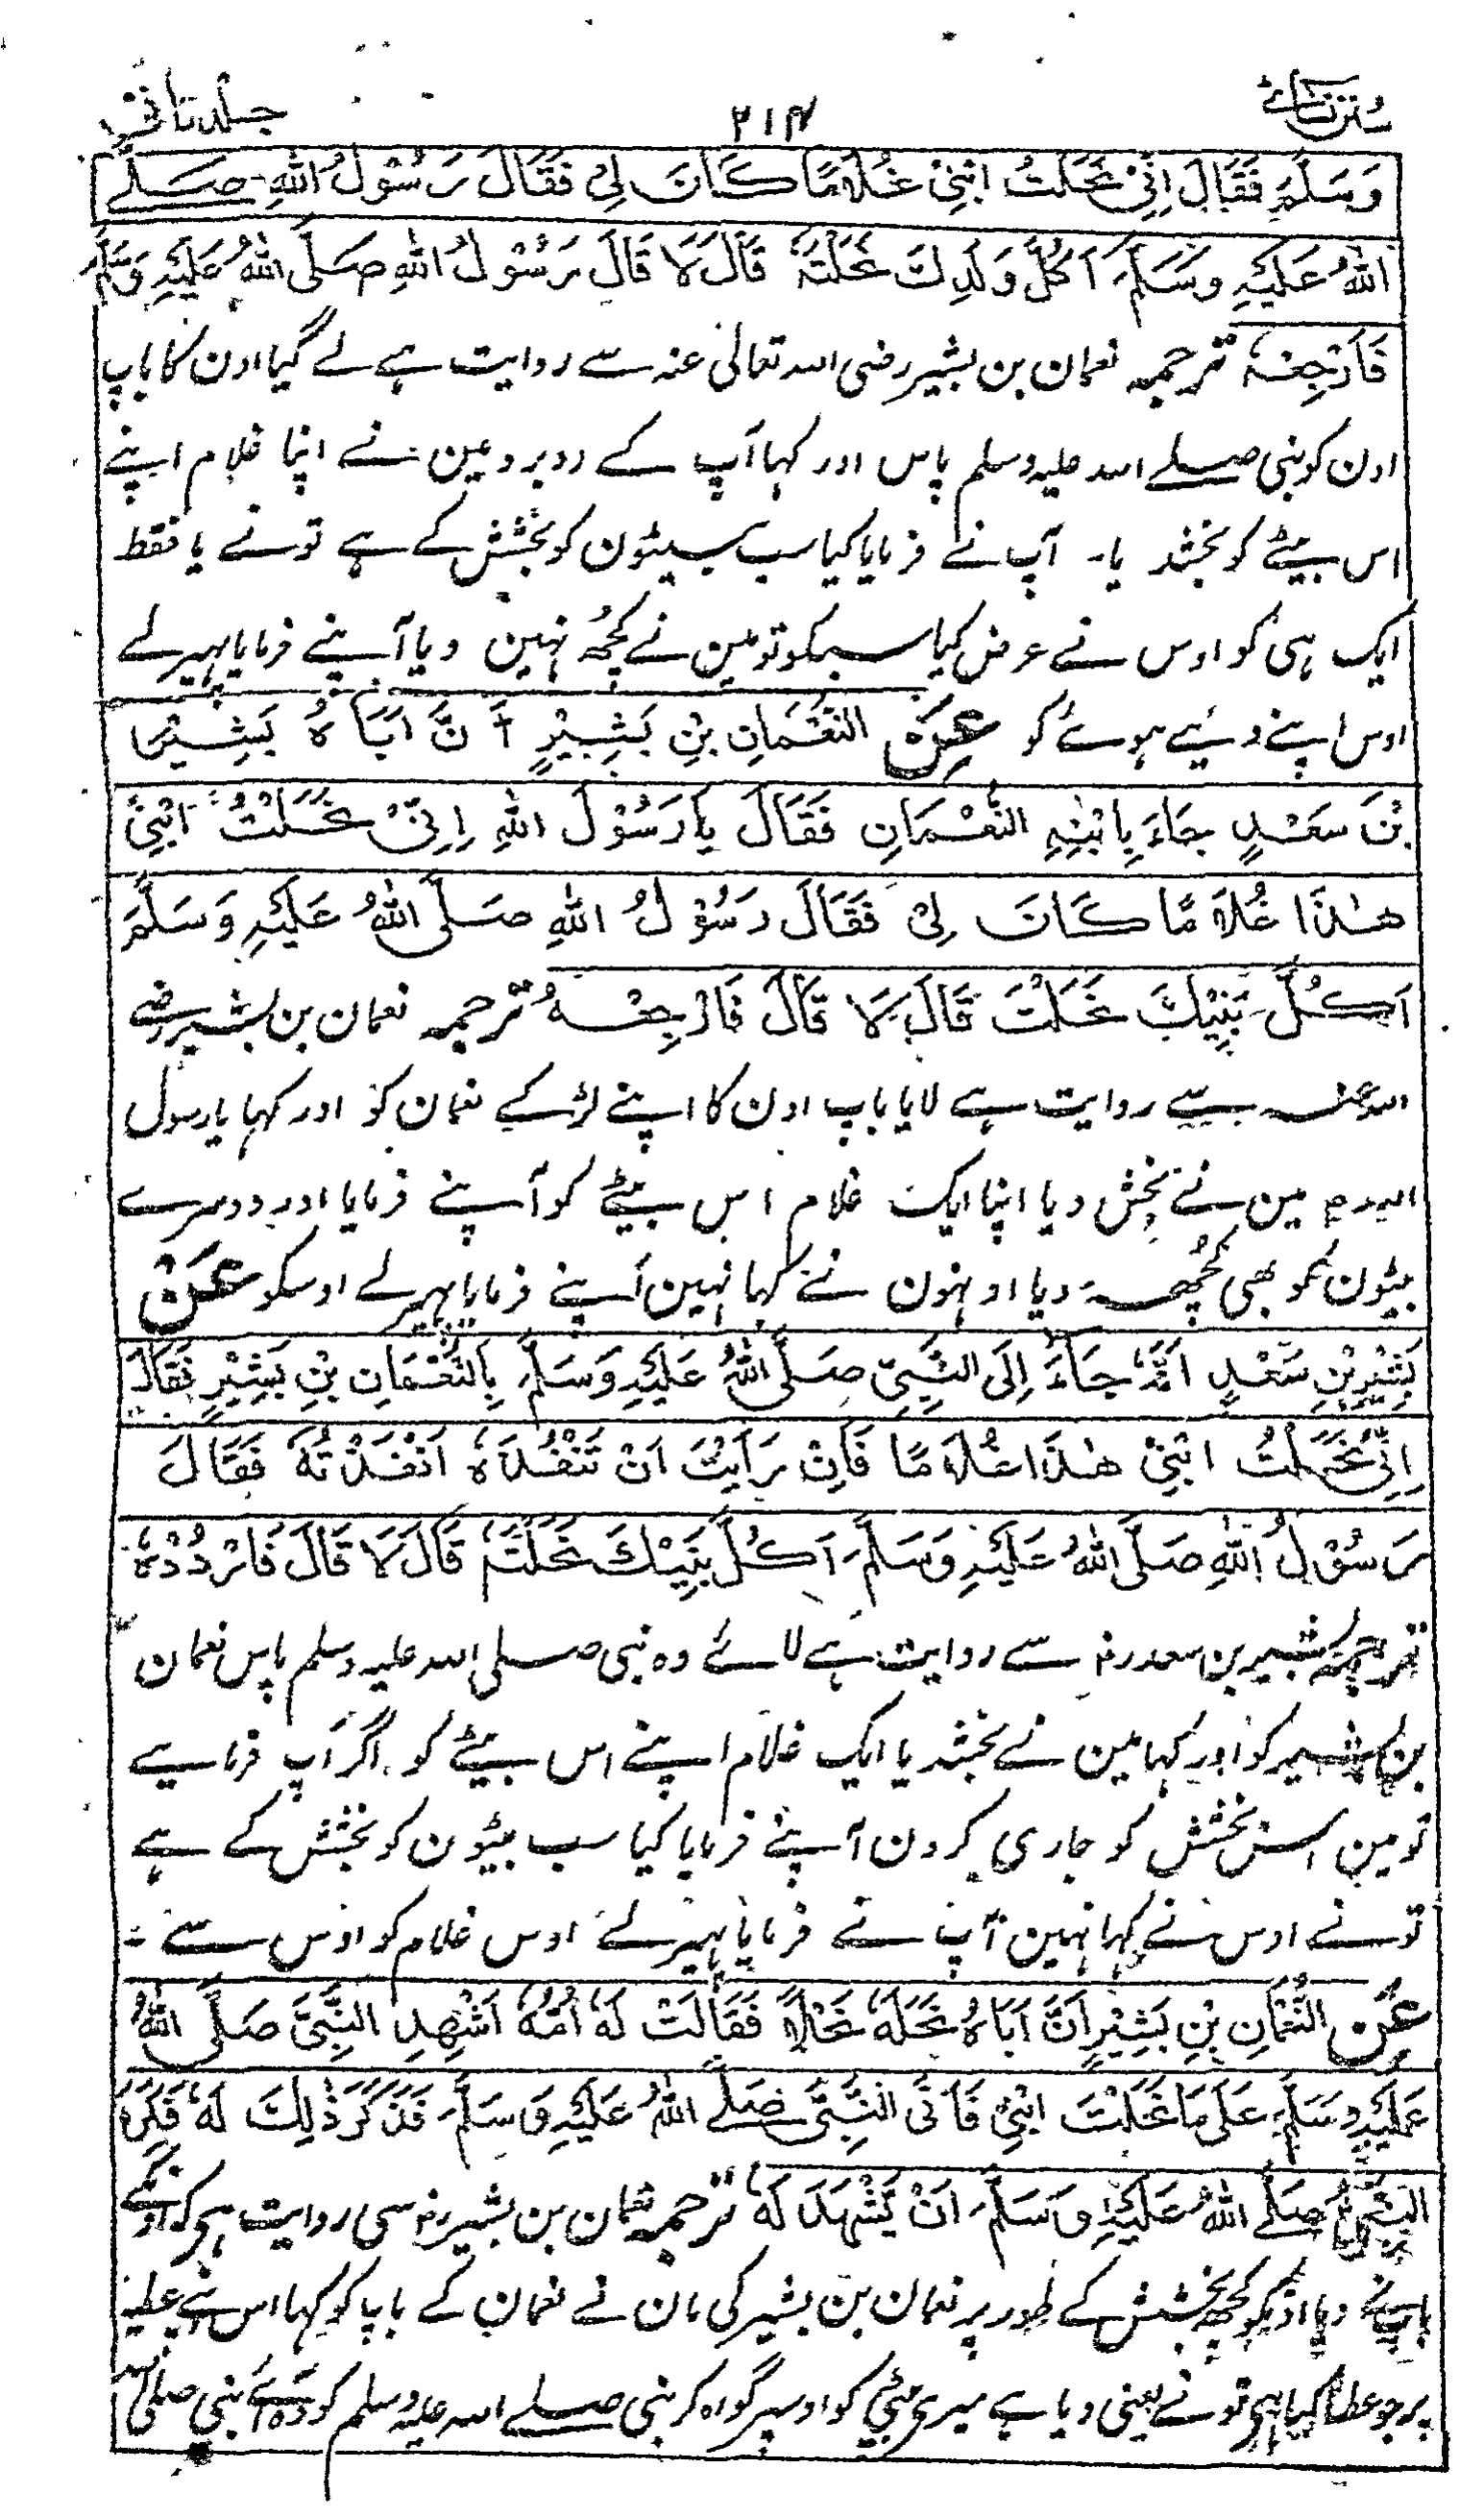 سنن نسائی ۲۱۴ جلد ثانی
وَسَلَّمَ فَقَالَ اِنِّیْ نَحَلْتُ ابْنِیْ غُلَامًا كَانَ لِیْ فَقَالَ رَسُوْلُ اللهِ صَلَّے
اللهُ عَلَيْهِ وَسَلَّمَ اَكُلَّ وَلَدِكَ نَحَلْتَهٗ قَالَ لَا قَالَ رَسُوْلُ اللهِ صَلَّی اللهُ عَلَيْهِ وَسَلَّمَ
فَارْجِعْهُ ترجمہ نعمان بن بشیر رضی اللہ تعالی عنہ سے روایت ہے لے گیا اون کا باپ
اون کو نبی صلے اللہ علیہ وسلم پاس اور کہا آپ کے روبرو مین نے اپنا غلام اپنے
اس بیٹے کو بخشد یا۔ آپ نے فرمایا کیا سب بیٹون کو بخشش کے ہے تو نے یا فقط
ایک ہی کو اوس نے عرض کیا سبکو تو مین نے کچھ نہین دیا آپنے فرمایا پہیر لے
اوس اپنے دئیے ہوئے کو عَنِ النُّعْمَانِ بْنِ بَشِيْرٍ اَنَّ اَبَاهُ بَشِيْرَ
بْنَ سَعْدٍ جَاءَ بِابْنِهِ النُّعْمَانِ فَقَالَ يَا رَسُوْلَ اللهِ اِنِّیْ نَحَلْتُ ابْنِیْ
هٰذَا غُلَامًا كَانَ لِیْ فَقَالَ رَسُوْلُ اللهِ صَلَّی اللهُ عَلَيْهِ وَسَلَّمَ
اَكُلَّ بَنِيْكَ نَحَلْتَ قَالَ لَا قَالَ فَارْجِعْهُ ترجمہ نعمان بن بشیر رضے
اللہ عنہ سے روایت ہے لایا باپ اون کا اپنے لڑکے نعمان کو اور کہا یا رسول
اللہ مین نے بخش دیا اپنا ایک غلام اس بیٹے کو آپنے فرمایا اور دوسرے
بیٹون کو بھی کچھ دیا اونہون نے کہا نہین آپنے فرمایا پہیر لے اوسکو عَنْ
بَشِيْرِ بْنِ سَعْدٍ اَنَّهٗ جَاءَ اِلَى النَّبِیِّ صَلَّی اللهُ عَلَيْهِ وَسَلَّمَ بِالنُّعْمَانِ بْنِ بَشِيْرٍ فَقَالَ
اِنِّیْ نَحَلْتُ ابْنِیْ هٰذَا غُلَامًا فَاِنْ رَاَيْتَ اَنْ تُنْفِذَهٗ اَنْفَذْتُهٗ فَقَالَ
رَسُوْلُ اللهِ صَلَّی اللهُ عَلَيْهِ وَسَلَّمَ اَكُلَّ بَنِيْكَ نَحَلْتَهٗ قَالَ لَا قَالَ فَارْدُدْهُ
ترجمہ بشیر بن سعد رض سے روایت ہے لائے وہ نبی صلی اللہ علیہ وسلم پاس نعمان
بن بشیر کو اور کہا مین نے بخشد یا ایک غلام اپنے اس بیٹے کو اگر آپ فرمایے
تو مین اس بخشش کو جاری کردون آپنے فرمایا کیا سب بیٹون کو بخشش کے ہے
تو نے اوس نے کہا نہین آپ نے فرمایا پہیر لے اوس غلام کو اوس سے -
عَنِ النُّعْمَانِ بْنِ بَشِيْرٍ اَنَّ اَبَاهُ نَحَلَهٗ نَحْلًا فَقَالَتْ لَهٗ اُمُّهٗ اَشْهِدِ النَّبِیَّ صَلَّی اللهُ
عَلَيْهِ وَسَلَّمَ عَلٰی مَا نَحَلْتَ ابْنِیْ فَاَتَی النَّبِیَّ صَلَّے اللهُ عَلَيْهِ وَسَلَّمَ فَذَكَرَ ذٰلِكَ لَهٗ فَكَرِهَ
النَّبِیُّ صَلَّے اللهُ عَلَيْهِ وَسَلَّمَ اَنْ يَّشْهَدَ لَهٗ ترجمہ نعمان بن بشیر رض سی روایت ہیکہ اونکے
باپنے دیا اونکو کچھ بخشش کے طور پر نعمان بن بشیر کی مان نے نعمان کے باپ کو کہا اس عطیہ
پر جو عطا کیا ہی تو نے یعنی دیا ہے میری بیٹے کو اوسپر گواہ کر نبی صلے اللہ علیہ وسلم کو نبی صلی اللہ